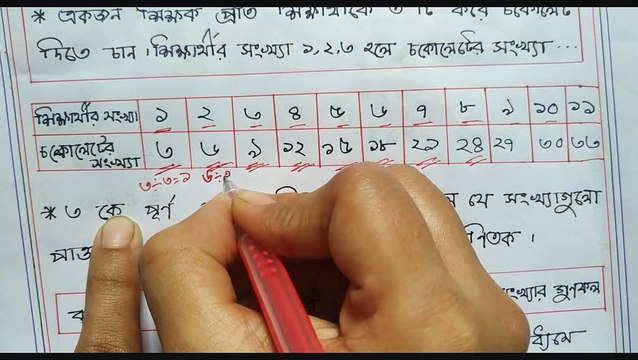 * একজন শিক্ষক প্রতি শিক্ষার্থীকে ৩ টি করে চকোলেট
দিতে চান। শিক্ষার্থীর সংখ্যা ১,২,৩ হলে চকোলেটের সংখ্যা ...
শিক্ষার্থীর সংখ্যা ১ ২ ৩ ৪ ৫ ৬ ৭ ৮ ৯ ১০ ১১
চকোলেটের সংখ্যা ৩ ৬ ৯ ১২ ১৫ ১৮ ২১ ২৪ ২৭ ৩০ ৩৩
৩÷৩=১ ৬÷
* ৩ কে পূর্ণ যে সংখ্যাগুলো
সংখ্যার গুণফল